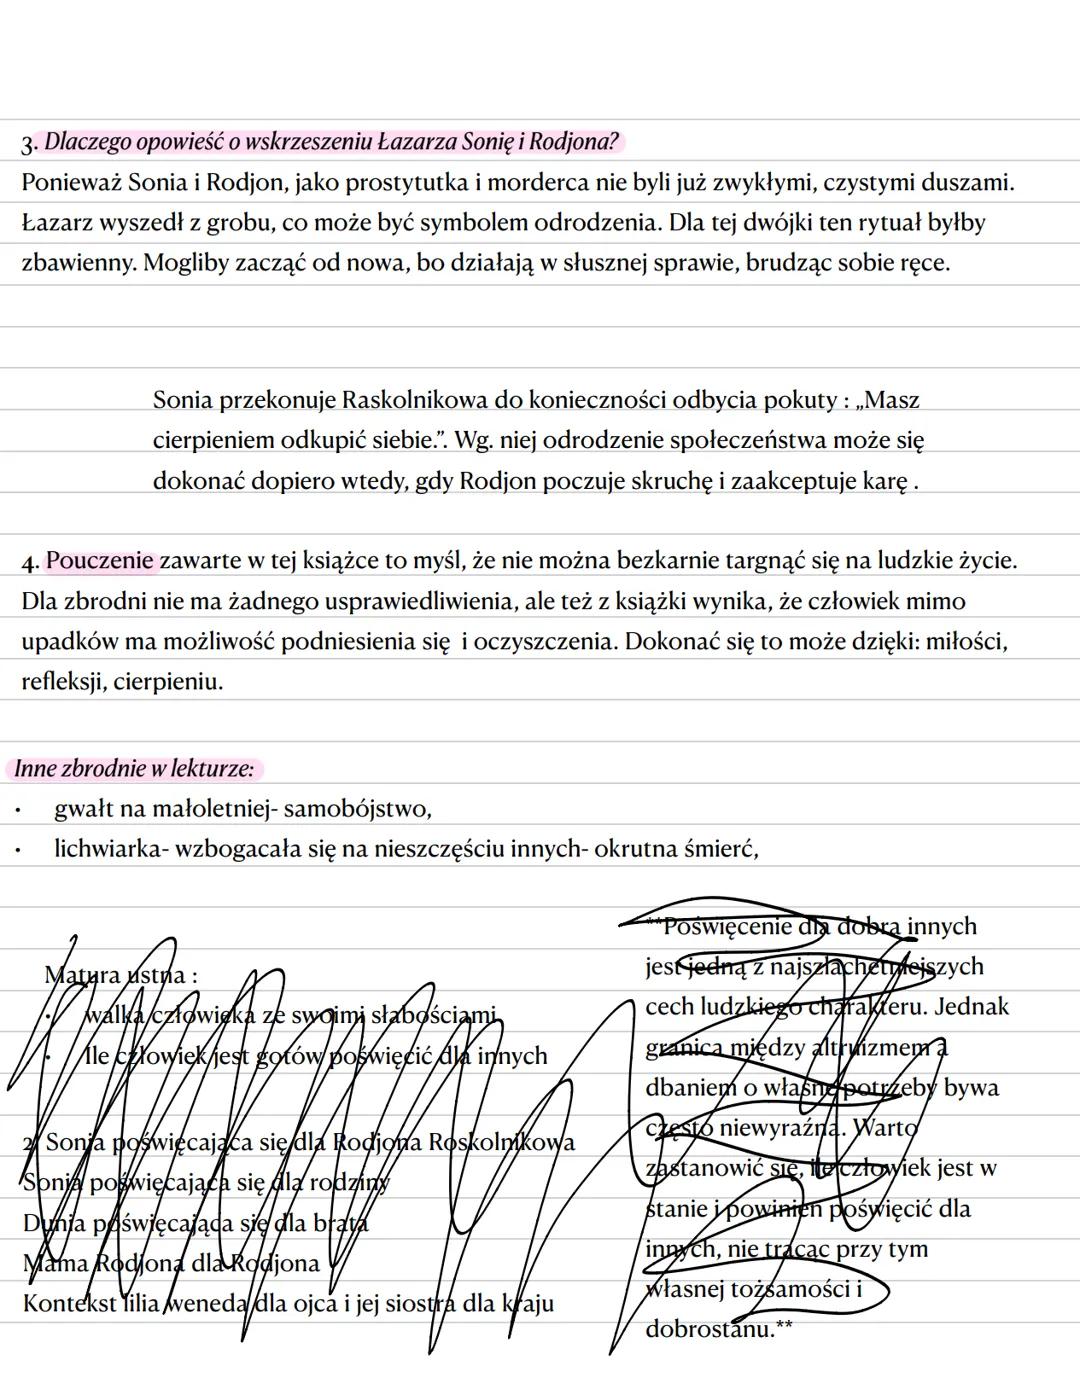 3. Dlaczego opowieść o wskrzeszeniu Łazarza Sonię i Rodjona?
Ponieważ Sonia i Rodjon, jako prostytutka i morderca nie byli już zwykłymi, czystymi duszami.
Łazarz wyszedł z grobu, co może być symbolem odrodzenia. Dla tej dwójki ten rytuał byłby
zbawienny. Mogliby zacząć od nowa, bo działają w słusznej sprawie, brudząc sobie ręce.
Sonia przekonuje Raskolnikowa do konieczności odbycia pokuty : „Masz
cierpieniem odkupić siebie.”. Wg. niej odrodzenie społeczeństwa może się
dokonać dopiero wtedy, gdy Rodjon poczuje skruchę i zaakceptuje karę .
4. Pouczenie zawarte w tej książce to myśl, że nie można bezkarnie targnąć się na ludzkie życie.
Dla zbrodni nie ma żadnego usprawiedliwienia, ale też z książki wynika, że człowiek mimo
upadków ma możliwość podniesienia się i oczyszczenia. Dokonać się to może dzięki: miłości,
refleksji, cierpieniu.
Inne zbrodnie w lekturze:
• gwałt na małoletniej- samobójstwo,
• lichwiarka- wzbogacała się na nieszczęściu innych- okrutna śmierć,
Matura ustna :
• walka człowieka ze swoimi słabościami
• Ile człowiek jest gotów poświęcić dla innych
2. Sonia poświęcająca się dla Rodjona Roskolnikowa
Sonia poświęcająca się dla rodziny
Dunia poświęcająca się dla brata
Mama Rodjona dla Rodjona
Kontekst lilia weneda dla ojca i jej siostra dla kraju
**Poświęcenie dla dobra innych
jest jedną z najszlachetniejszych
cech ludzkiego charakteru. Jednak
granica między altruizmem a
dbaniem o własne potrzeby bywa
często niewyraźna. Warto
zastanowić się, ile człowiek jest w
stanie i powinien poświęcić dla
innych, nie tracąc przy tym
własnej tożsamości i
dobrostanu.**